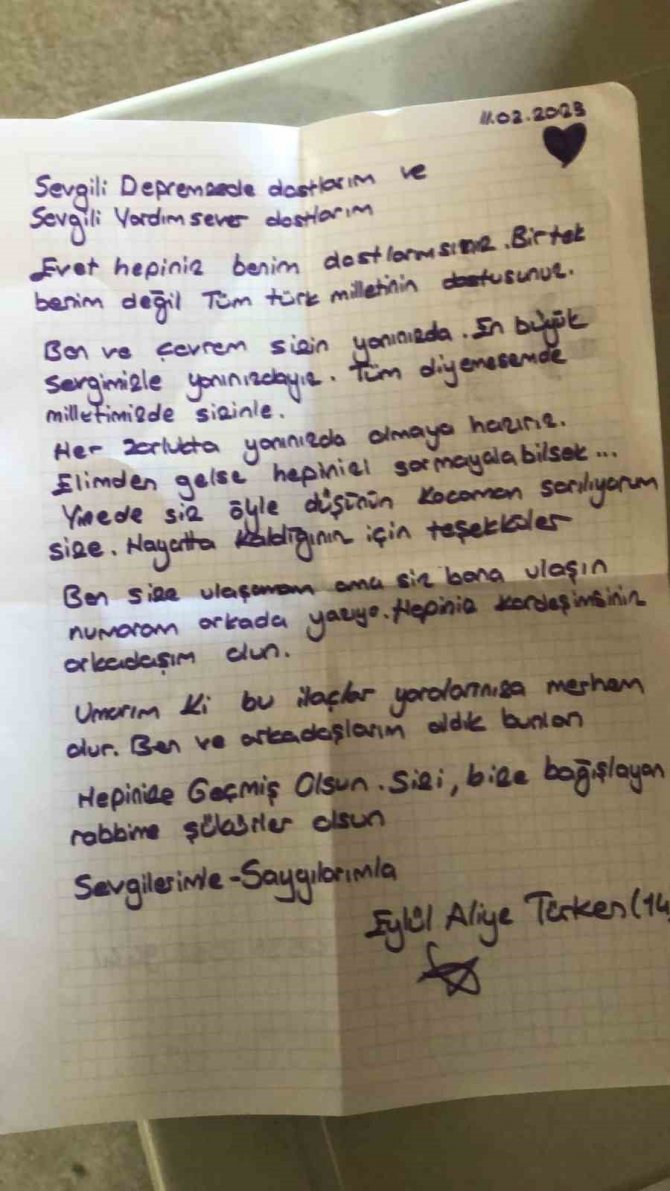 11.02.2023
Sevgili Depremzede dostlarım ve
Sevgili Yardımsever dostlarım
Evet hepiniz benim dostlarımsınız. Bir tek
benim değil Tüm türk milletinin dostusunuz.
Ben ve çevrem sizin yanınızda. En büyük
Sevgimizle yanınızdayız. Tüm diyemesemde
milletimizde sizinle.
Her zorlukta yanınızda olmaya hazırız.
Elimden gelse hepinizi sarmayalabilsek...
Yinede siz öyle düşünün kocaman sarılıyorum
size. Hayatta kaldığının için teşekküler
Ben size ulaşamam ama siz bana ulaşın
numaram arkada yazıyo. Hepiniz kardeşimsiniz
arkadaşım olun.
Umarım ki bu ilaçlar yaralarınıza merhem
olur. Ben ve arkadaşlarım aldık bunları
Hepinize Geçmiş Olsun. Sizi, bize bağışlayan
rabbime şükürler olsun
Sevgilerimle-Saygılarımla
Eylül Aliye Türken (14